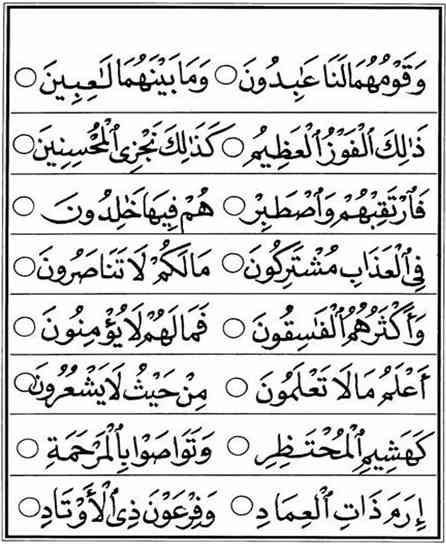 وَقَوْمُهُمَا لَنَا عَٰبِدُونَ ○ وَمَا بَيْنَهُمَا لَٰعِبِينَ ○
ذَٰلِكَ ٱلْفَوْزُ ٱلْعَظِيمُ ○ كَذَٰلِكَ نَجْزِى ٱلْمُحْسِنِينَ ○
فَٱرْتَقِبْهُمْ وَٱصْطَبِرْ ○ هُمْ فِيهَا خَٰلِدُونَ ○
فِى ٱلْعَذَابِ مُشْتَرِكُونَ ○ مَالَكُمْ لَا تَنَاصَرُونَ ○
وَأَكْثَرُهُمُ ٱلْفَٰسِقُونَ ○ فَمَالَهُمْ لَا يُؤْمِنُونَ ○
أَعْلَمُ مَا لَا تَعْلَمُونَ ○ مِنْ حَيْثُ لَا يَشْعُرُونَ ○
كَهَشِيمِ ٱلْمُحْتَظِرِ ○ وَتَوَاصَوْا بِٱلْمَرْحَمَةِ ○
إِرَمَ ذَاتِ ٱلْعِمَادِ ○ وَفِرْعَوْنَ ذِى ٱلْأَوْتَادِ ○